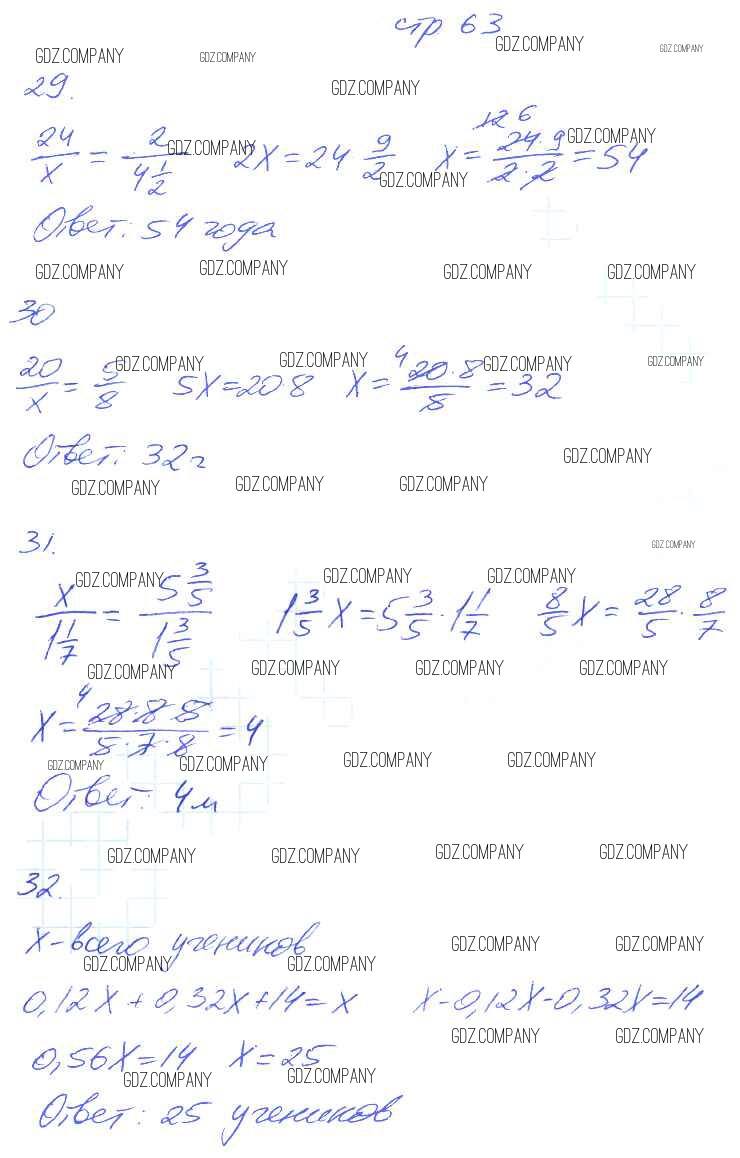 стр 63
GDZ.COMPANY GDZ.COMPANY GDZ.COMPANY GDZ.COMPANY
29. GDZ.COMPANY
24/x = 2/4 1/2 2x = 24 9/2 x = 24·9/2·2 = 54 12 6
GDZ.COMPANY GDZ.COMPANY GDZ.COMPANY
Ответ: 54 года
GDZ.COMPANY GDZ.COMPANY GDZ.COMPANY GDZ.COMPANY
30
20/x = 5/8 5x = 20 8 x = 20·8/5 = 32 4
GDZ.COMPANY GDZ.COMPANY GDZ.COMPANY GDZ.COMPANY
Ответ: 32 г
GDZ.COMPANY
GDZ.COMPANY GDZ.COMPANY GDZ.COMPANY
31. GDZ.COMPANY
GDZ.COMPANY GDZ.COMPANY GDZ.COMPANY
x/1 1/7 = 5 3/5/1 3/5 1 3/5 x = 5 3/5 · 1 1/7 8/5 x = 28/5 · 8/7
GDZ.COMPANY GDZ.COMPANY GDZ.COMPANY GDZ.COMPANY
x = 28·8·5/5·7·8 = 4 4
GDZ.COMPANY GDZ.COMPANY GDZ.COMPANY GDZ.COMPANY
Ответ: 4 м
GDZ.COMPANY GDZ.COMPANY GDZ.COMPANY GDZ.COMPANY
32.
x - всего учеников
GDZ.COMPANY GDZ.COMPANY
GDZ.COMPANY GDZ.COMPANY
0,12x + 0,32x + 14 = x x - 0,12x - 0,32x = 14
GDZ.COMPANY GDZ.COMPANY
0,56x = 14 x = 25
GDZ.COMPANY GDZ.COMPANY
Ответ: 25 учеников